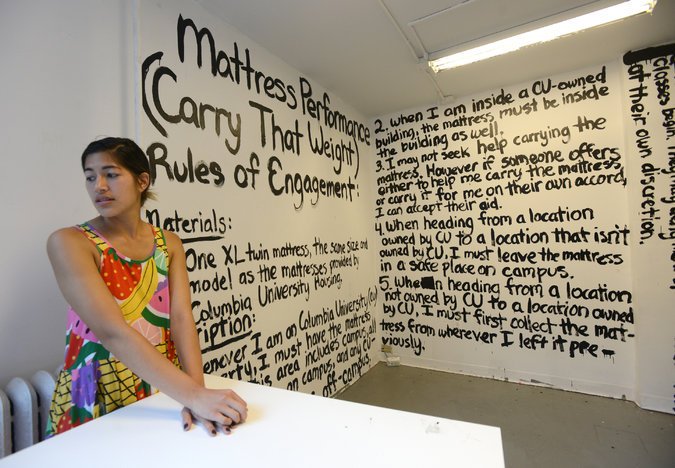 Mattress Performance
(Carry That Weight)
Rules of Engagement:
Materials:
One XL-twin mattress, the same size and
model as the mattresses provided by
Columbia University Housing.
cription:
enever I am on Columbia University (CU)
rty, I must have the mattress
this area includes campus, all
on campus, and any CU-
off-campus.
2. When I am inside a CU-owned
building, the mattress must be inside
the building as well.
3. I may not seek help carrying the
mattress. However if someone offers
either to help me carry the mattress
or carry it for me on their own accord,
I can accept their aid.
4. When heading from a location
owned by CU to a location that isn't
owned by CU, I must leave the mattress
in a safe place on campus.
5. When heading from a location
not owned by CU to a location owned
by CU, I must first collect the mat-
tress from wherever I left it pre-
viously.
classes begin.
at their own discretion.